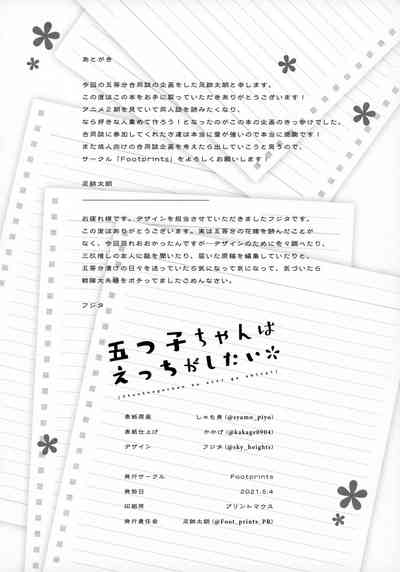 あとがき
今回の五等分合同誌の企画をした足跡太朗と申します。
この度はこの本をお手に取っていただきありがとうございます！
アニメ２期を見ていて同人誌を読みたくなり、
なら好きな人集めて作ろう！となったのがこの本の企画のきっかけでした。
合同誌に参加してくれた方達は本当に愛が強いので本当に感謝です！
また成人向けの合同誌企画を考えたら出していこうと思うので、
サークル「Footprints」をよろしくお願いします！
足跡太朗
お疲れ様です。デザインを担当させていただきましたフジタです。
この度はありがとうございます。実は五等分の花嫁を読んだことが
なく、今回恐れおおかったんですが…デザインのために色々調べたり、
三玖推しの友人に話を聞いたり、届いた原稿を編集していたりと、
五等分漬けの日々を送っていたら気になって気になって、気づいたら
戦隊大失格をポチってましたごめんなさい。
フジタ
五つ子ちゃんは
えっちがしたい
表紙原画 しゃも美(@syamo_piyo)
表紙仕上げ かかげ(@kakage0904)
デザイン フジタ(@sky_heights)
発行サークル Footprints
発行日 2021.5.4
印刷所 プリントマウス
発行責任者 足跡太朗(@Foot_prints_PR)